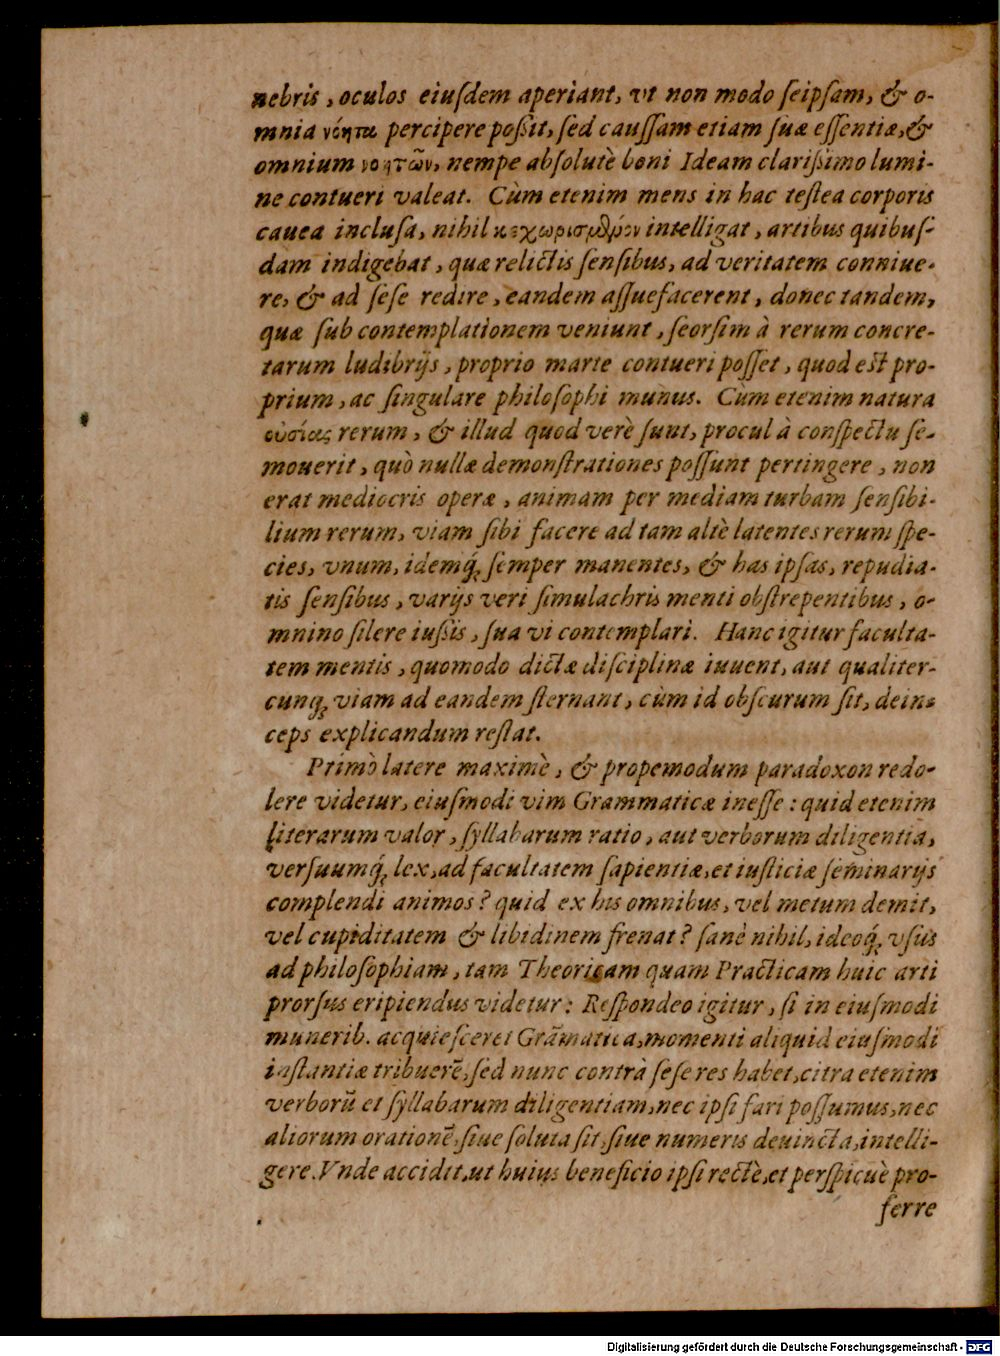 nebris, oculos eiuſdem aperiant, vt non modo ſeipſam, & o-
mnia νόητα percipere poßit, ſed cauſſam etiam ſuæ eſſentiæ, &
omnium νοητῶν, nempe abſolutè boni Ideam clarißimo lumi-
ne contueri valeat. Cùm etenim mens in hac teſtea corporis
cauea incluſa, nihil κεχωρισμένον intelligat, artibus quibuſ-
dam indigebat, quæ relictis ſenſibus, ad veritatem conniue-
re, & ad ſeſe redire, eandem aſſuefacerent, donec tandem,
quæ ſub contemplationem veniunt, ſeorſim à rerum concre-
tarum ludibrijs, proprio marte contueri poſſet, quod eſt pro-
prium, ac ſingulare philoſophi munus. Cùm etenim natura
οὐσίας rerum, & illud quod verè ſunt, procul à conſpectu ſe-
mouerit, quò nullæ demonſtrationes poſſunt pertingere, non
erat mediocris operæ, animam per mediam turbam ſenſibi-
lium rerum, viam ſibi facere ad tam altè latentes rerum ſpe-
cies, vnum, idemq́; ſemper manentes, & has ipſas, repudia-
tis ſenſibus, varijs veri ſimulachris menti obſtrepentibus, o-
mnino ſilere iußis, ſua vi contemplari. Hanc igitur faculta-
tem mentis, quomodo dictæ diſciplinæ iuuent, aut qualiter-
cunq; viam ad eandem ſternant, cùm id obſcurum ſit, dein-
ceps explicandum reſtat.
Primò latere maximè, & propemodum paradoxon redo-
lere videtur, eiuſmodi vim Grammaticæ ineſſe: quid etenim
literarum valor, ſyllabarum ratio, aut verborum diligentia,
verſuumq́; lex, ad facultatem ſapientiæ, et iuſticiæ ſeminarijs
complendi animos? quid ex his omnibus, vel metum demit,
vel cupiditatem & libidinem frenat? ſanè nihil, ideoq́; vſus
ad philoſophiam, tam Theoricam quam Practicam huic arti
prorſus eripiendus videtur: Reſpondeo igitur, ſi in eiuſmodi
munerib. acquieſceret Grãmatica, momenti aliquid eiuſmodi
inſtantiæ tribuerẽ, ſed nunc contrà ſeſe res habet, citra etenim
verborũ et ſyllabarum diligentiam, nec ipſi fari poſſumus, nec
aliorum orationẽ, ſiue ſoluta ſit, ſiue numeris deuincta, intelli-
gere. Vnde accidit, ut huius beneficio ipſi rectè, et perſpicuè pro-
ferre
Digitalisierung gefördert durch die Deutsche Forschungsgemeinschaft - DFG